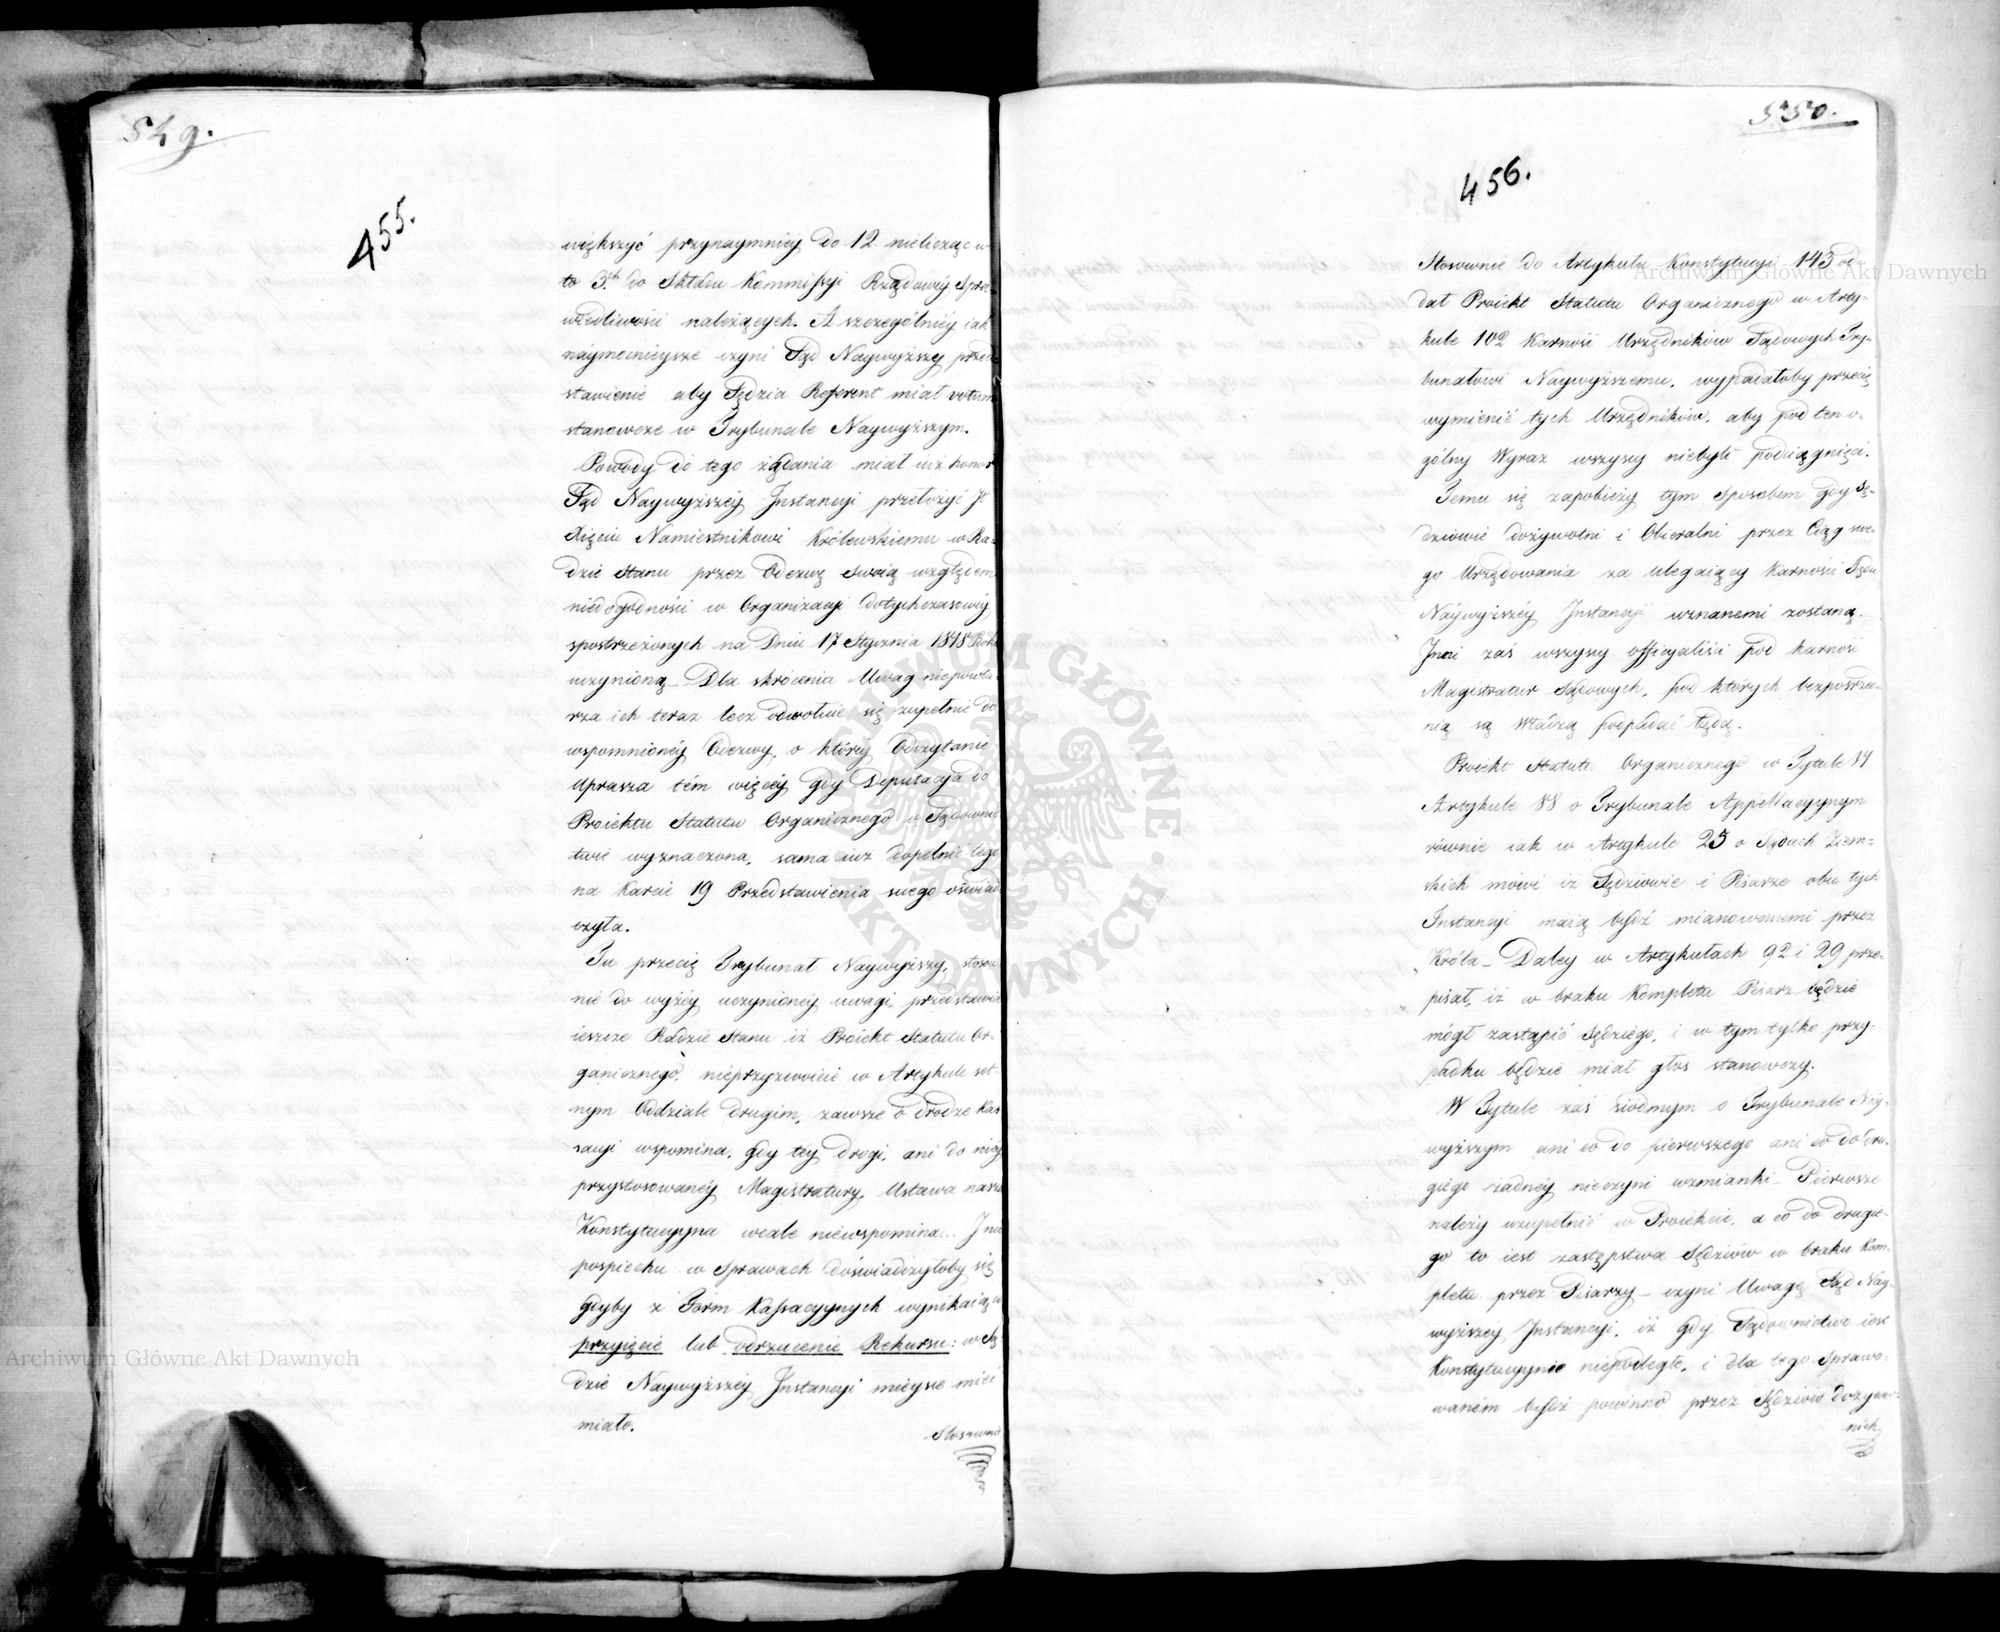 549.
455.
większyć przynaymniey do 12 nielicząc w
to 3ch do Składu Kommissyi Rządowey Spra-
wiedliwości należących. A szczególniey iak
naymocnieysze czyni Sąd Naywyższy przed-
stawienie aby Sędzia Referent miał votum
stanowcze w Trybunale Naywyższym.
Powody do tego żądania miał iuż honor
Sąd Naywyższey Instancyi przełożyć J.O.
Xięciu Namiestnikowi Królewskiemu w Ra-
dzie Stanu przez Odezwę swoią względem
niedogodności w Organizacyi dotychczasowey
spostrzeżonych na Dniu 17 Stycznia 1818 Roku
uczynioną - Dla skrócenia Uwag niepowta-
rza ich teraz lecz odwołuie się zupełnie do
wspomnioney Odezwy, o którey Odczytanie
uprasza tém więcey gdy Deputacya do
Proiektu Statutu Organicznego o Sądowni-
twie wyznaczona, sama iuż dopełnić tego
na karcie 19 Przedstawienia swego oświad-
czyła.
Tu przecię Trybunał Naywyższy, stosow-
nie do wyżey uczynioney uwagi, przedstawia
ieszcze Radzie Stanu iż Proiekt Statutu Or-
ganicznego, nieprzyzwoicie w Artykule set-
nym Oddziale drugim, zawsze o drodze Kas-
sacyi wspomina, gdy tey drogi, ani do niey
przystosowaney Magistratury, Ustawa nasza
Konstytucyyna wcale niewspomina... I na
pospiechu w Sprawach doświadczyłoby się
gdyby z Form Kassacyynych wynikaiące
przyięcie lub odrzucenie Rekursu: w Są-
dzie Naywyższey Instancyi mieysce mieć
miało.
Stosownie
550.
456.
Stosownie do Artykułu Konstytucyi 143 od-
dał Proiekt Statutu Organicznego w Arty-
kule 102 Karność Urzędników Sądowych Try-
bunałowi Naywyższemu, wypadałoby przecię
wymienić tych Urzędników, aby pod ten o-
gólny Wyraz wszyscy niebyli podciągnięci.
Temu się zapobieży tym sposobem gdy Sę-
dziowie dożywotni i Obieralni przez Ciąg swe-
go Urzędowania za ulegaiący Karności Sądu
Naywyższéy Instancyi uznanemi zostaną.
Inni zaś wszyscy officyaliści pod karność
Magistratur Sądowych, pod których bezpośred-
nią są władzą podpadać będą.
Proiekt Statutu Organicznego w Tytule 14
Artykule 88 o Trybunale Appellacyynym
równie iak w Artykule 25 o Sądach Ziem-
skich mówi iż Sędziowie i Pisarze obu tych
Instancyi maią bydź mianowanemi przez
Króla - Daley w Artykułach 92 i 29 prze-
pisał, iż w braku Kompletu Pisarz będzie
mógł zastąpić Sędziego, i w tym tylko przy-
padku będzie miał głos stanowczy.
W Tytule zaś siódmym o Trybunale Nay-
wyższym ani co do pierwszego ani co do dru-
giego żadney nieczyni wzmianki - Pierwsze
należy uzupełnić w Proiekcie, a co do drugie-
go to iest zastępstwa Sędziów w braku Kom-
pletu przez Pisarzy - czyni Uwagę Sąd Nay-
wyższey Instancyi, iż gdy Sądownictwo iest
Konstytucyynie niepodległe, i dla tego sprawo-
waném bydź powinno przez Sędziów dożywot-
nich
ARCHIWUM GŁÓWNE AKT DAWNYCH
Archiwum Główne Akt Dawnych
Archiwum Główne Akt Dawnych